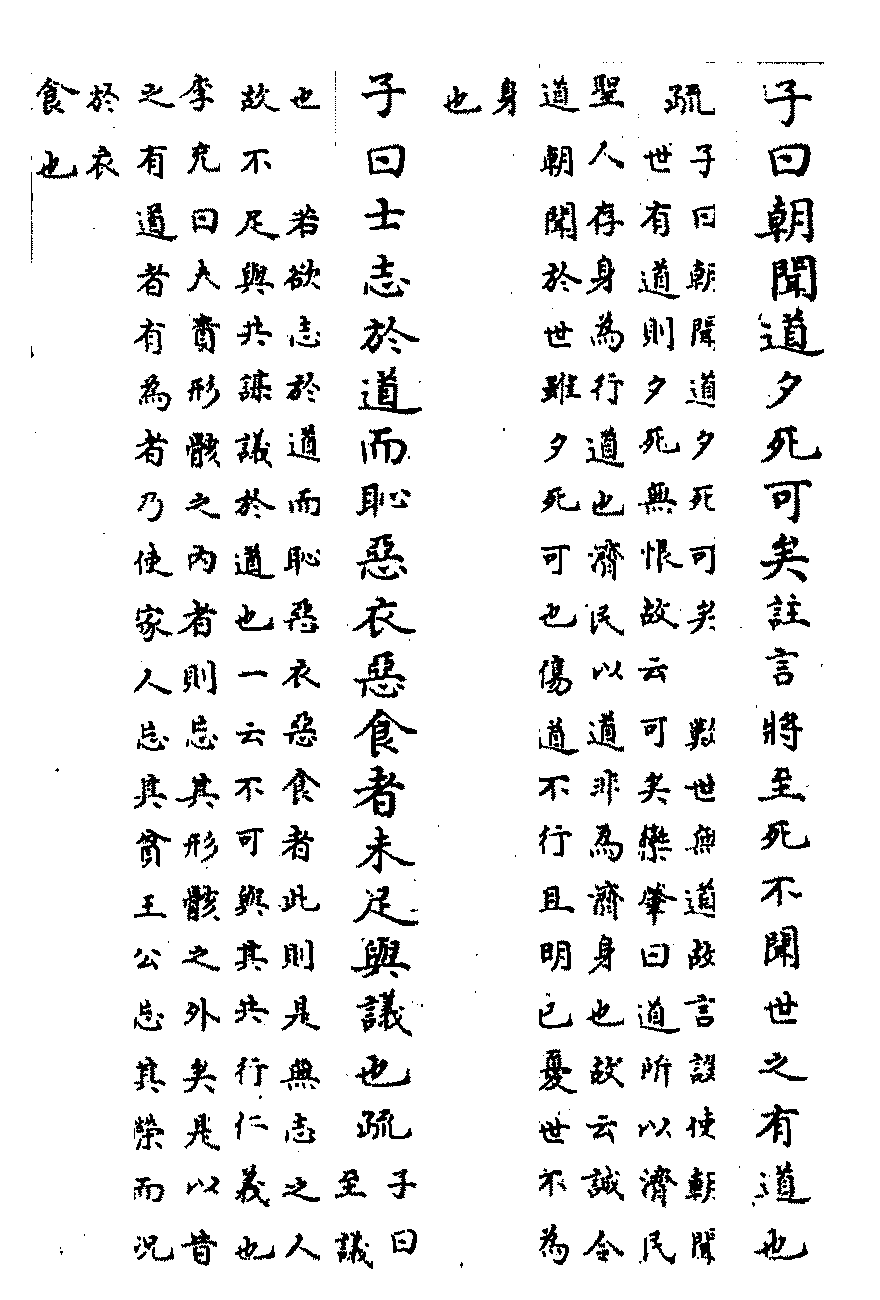 子曰朝聞道夕死可矣註言將至死不聞世之有道也
疏子曰朝聞道夕死可矣 數世無道故言設使朝聞
世有道則夕死無恨故云可矣欒肇曰道所以濟民
聖人存身為行道也濟民以道非為濟身也故云誠令
道朝聞於世雖夕死可也傷道不行且明己憂世不為
身
也
子曰士志於道而恥惡衣惡食者未足與議也疏子曰
至議
也 若欲志於道而恥惡衣惡食者此則是無志之人
故不足與共謀議於道也一云不可與其共行仁義也
李充曰夫貴形骸之內者則忘其形骸之外矣是以昔
之有道者有為者乃使家人忘其貧王公忘其榮而況
於衣
食也